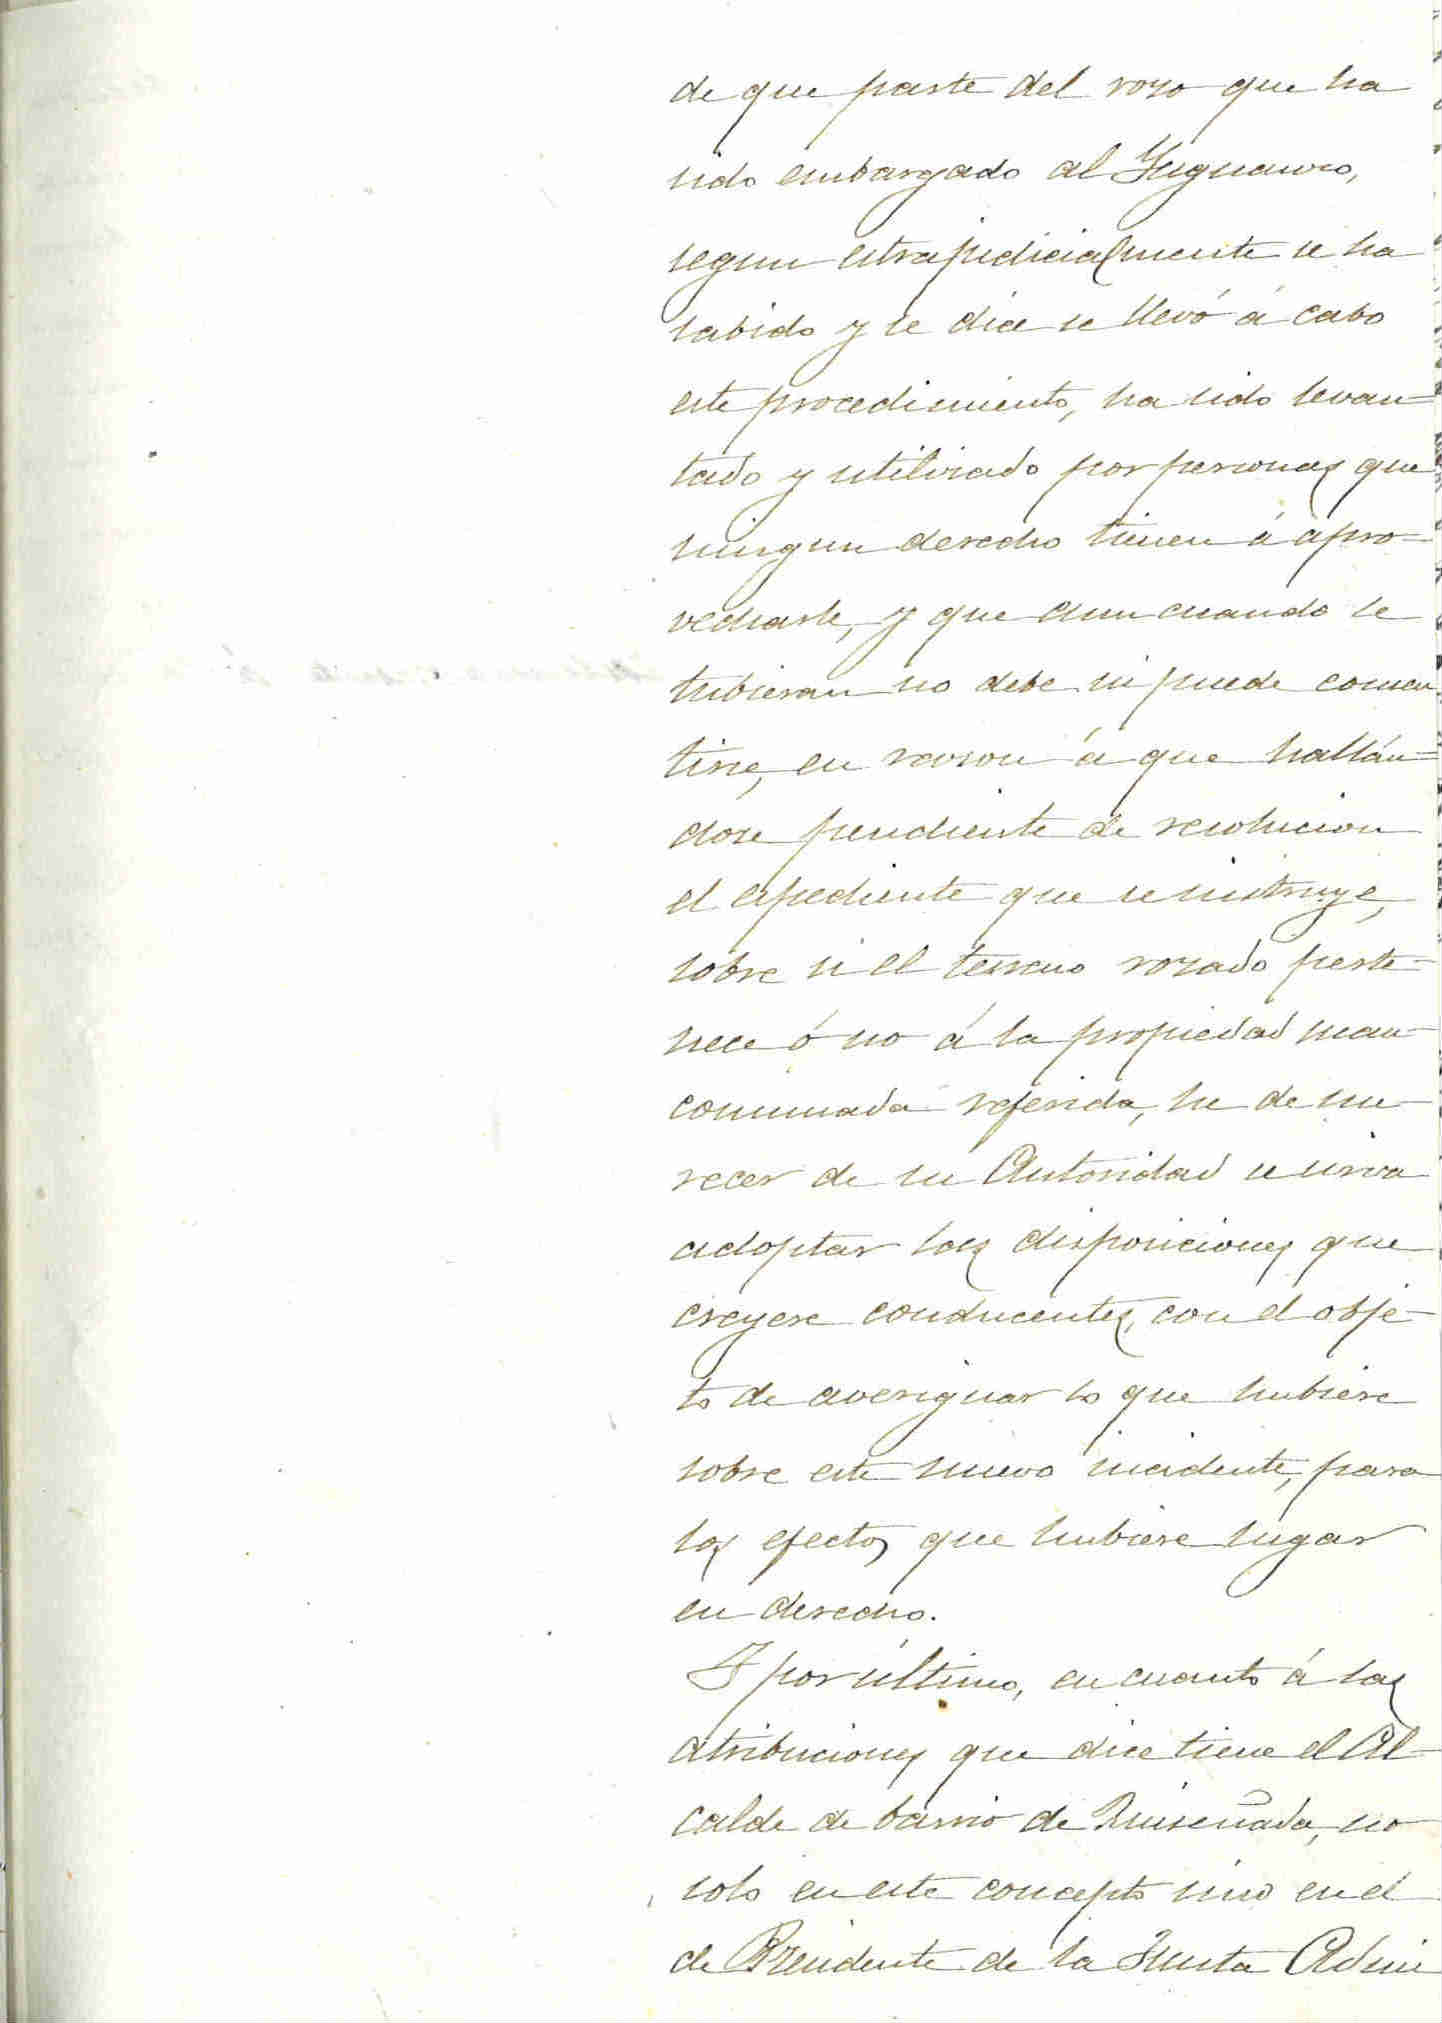 de que parte del rozo que ha
sido embargado al Yuguanzo,
segun estrajudicialmente se ha
sabido y se dice se llevó á cabo
este procedimiento, ha sido levan=
tado y utilizado por personas que
ningun derecho tienen á apro=
vecharle, y que aun cuando le
tubieran no debe ni puede consen
tirse, en razon á que hallán=
dose pendiente de resolucion
el espediente que se instruye,
sobre si el terreno rozado perte=
nece ó no á la propiedad man-
comunada referida, he de me-
recer de su Autoridad se sirva
adoptar las disposiciones que
creyere conducentes, con el obje-
to de averiguar lo que hubiere
sobre este nuevo incidente, para
los efectos que hubiere lugar
en derecho.
Y por último, en cuanto á las
atribuciones que dice tiene el Al-
calde de barrio de Ruiseñada, no
solo en este concepto sino en el
de Presidente de la Junta Admi